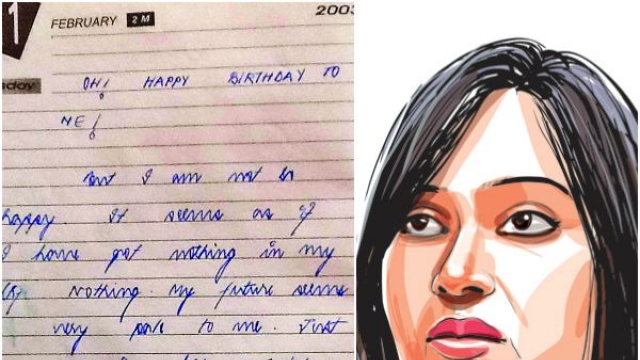 1 FEBRUARY 2 M 2003
OH! HAPPY BIRTHDAY TO
ME!
But I am not
happy It seems as if
I have got nothing in my
Nothing. My future seems
very pale to me. Just